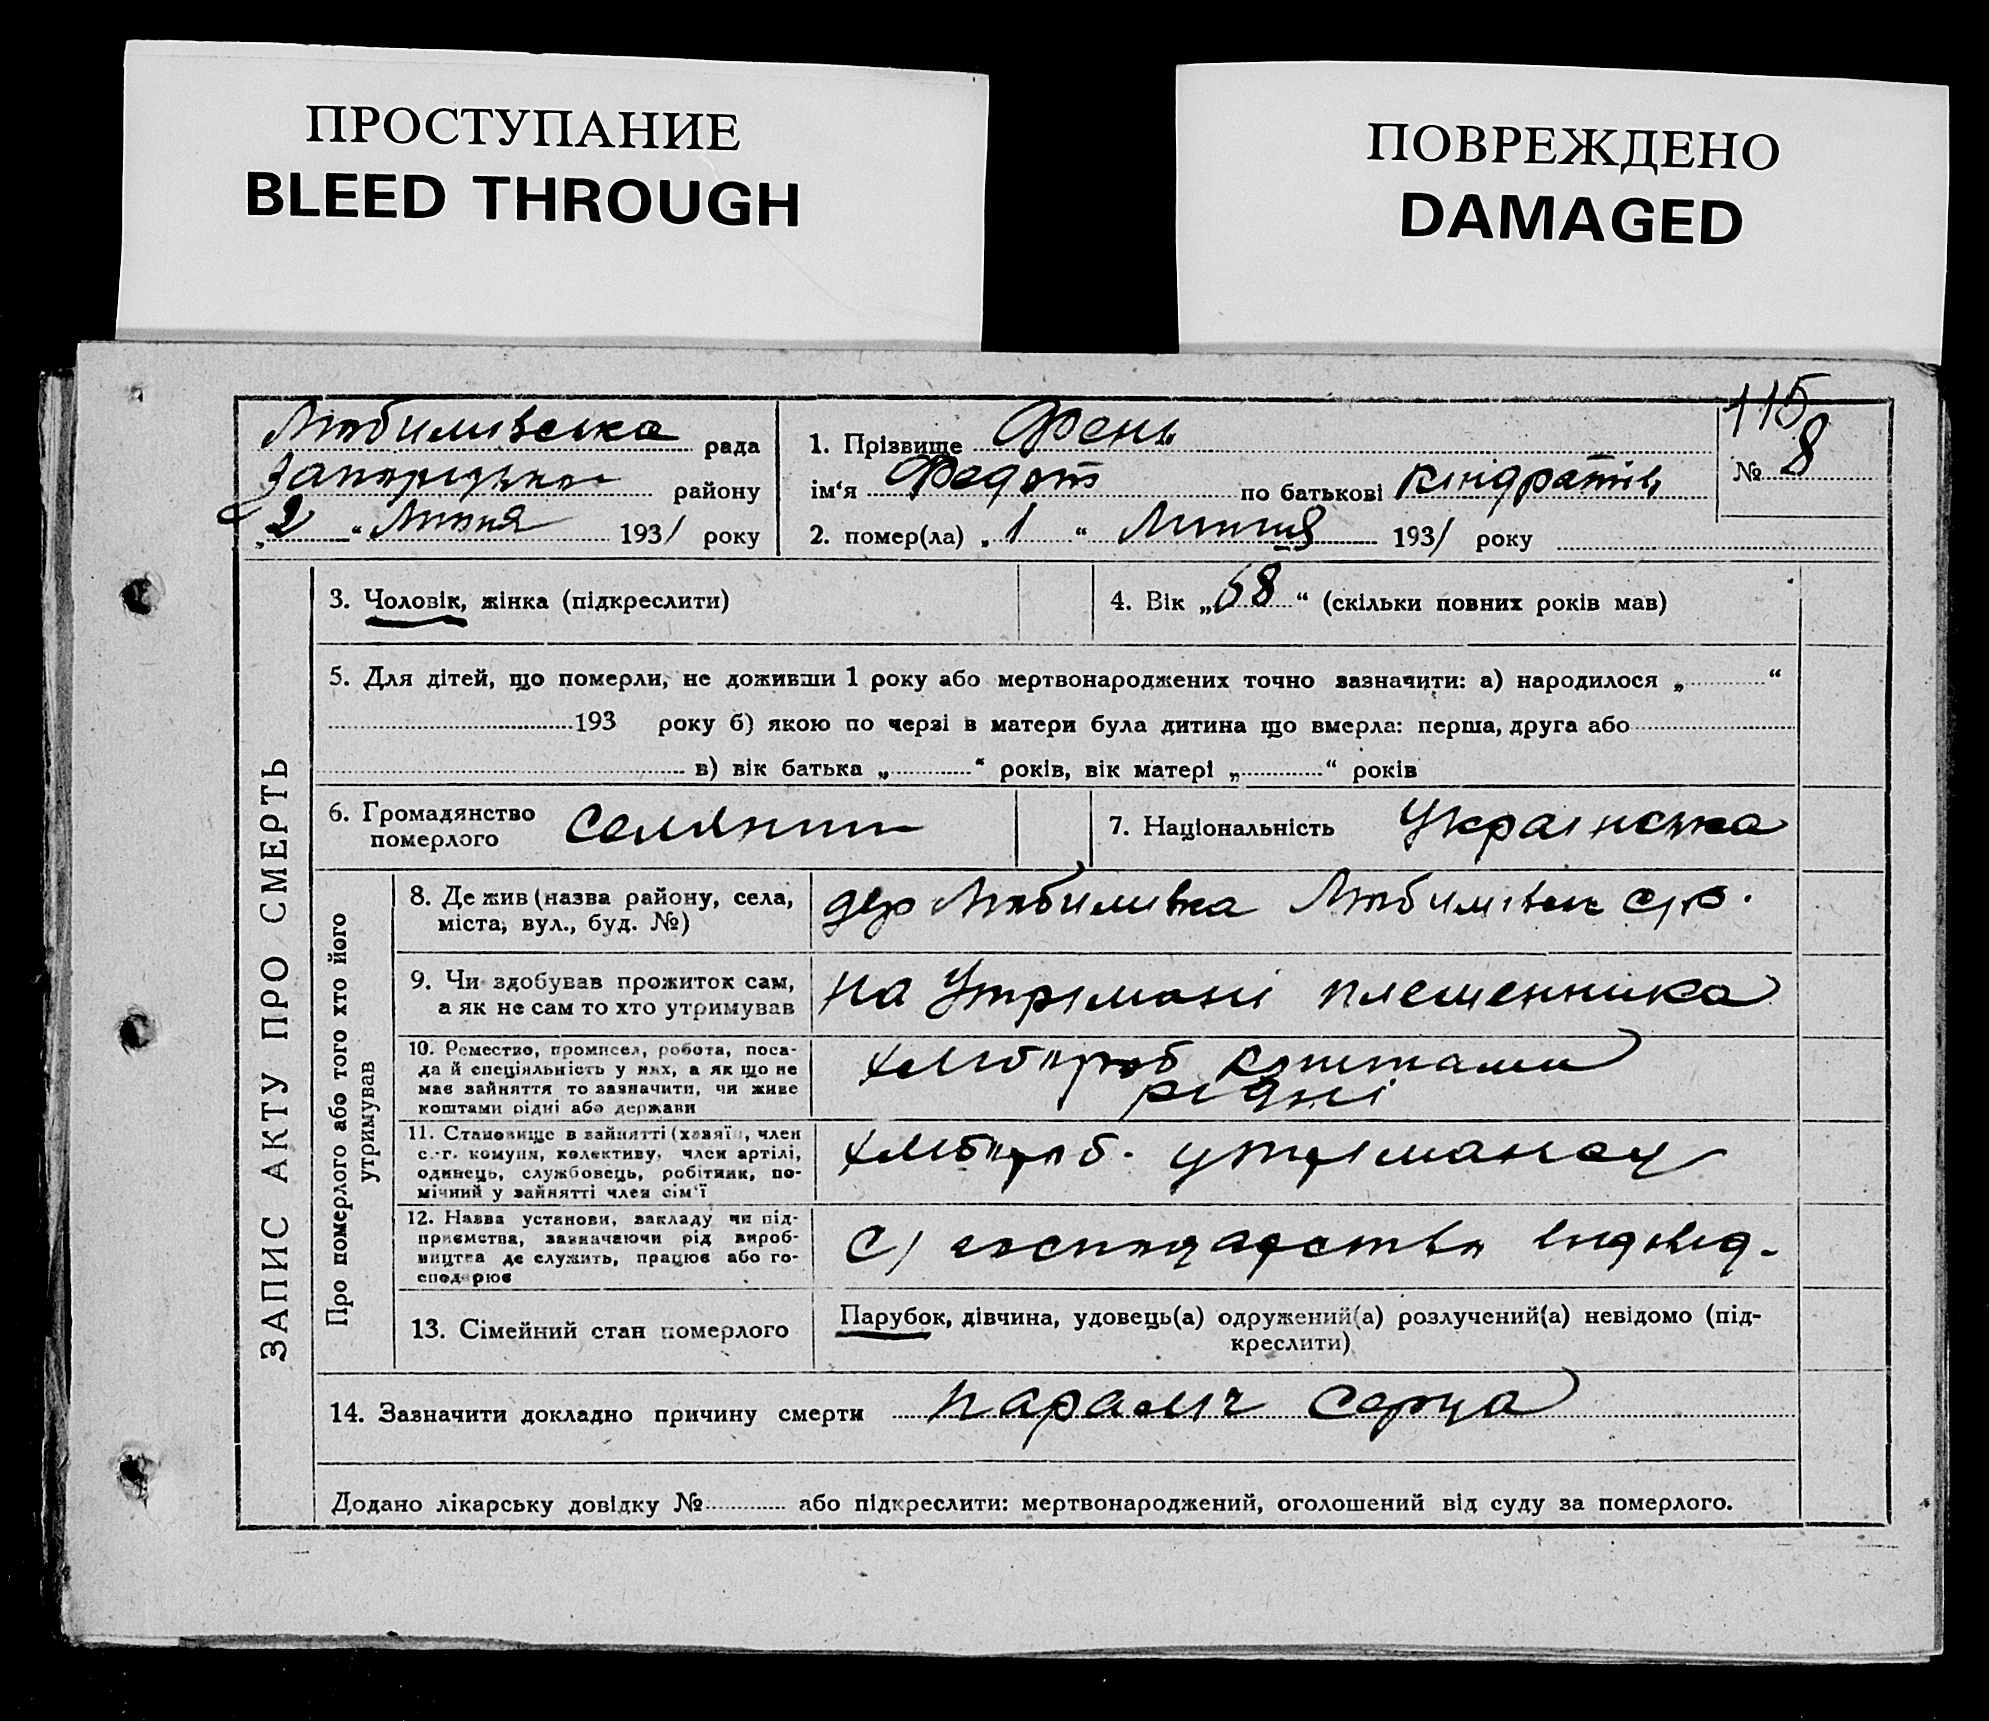 ПРОСТУПАНИЕ
BLEED THROUGH
ПОВРЕЖДЕНО
DAMAGED
115
Любимівська рада
району
„2“ Липня 1931 року
1. Прізвище Фень
ім‘я Федот по батькові Кіндратів
№ 8
2. помер(ла) „1“ Липня 1931 року
ЗАПИС АКТУ ПРО СМЕРТЬ
3. Чоловік, жінка (підкреслити)
4. Вік „68“ (скільки повних років мав)
5. Для дітей, що померли, не доживши 1 року або мертвонароджених точно зазначити: а) народилося „ “
193 року б) якою по черзі в матери була дитина що вмерла: перша, друга або
в) вік батька „ “ років, вік матері „ “ років
6. Громадянство
померлого
Селянин
7. Національність Українська
Про померлого або того хто його
утримував
8. Де жив (назва району, села,
міста, вул., буд. №)
дер Любимівка Любимівск с/р.
9. Чи здобував прожиток сам,
а як не сам то хто утримував
на утримані племенника
10. Ремество, промисел, робота, поса-
да й спеціяльність у них, а як що не
має зайняття то зазначити, чи живе
коштами рідні або держави
хлібороб коштами
рідні
11. Становище в зайнятті (хазяїн, член
с.-г. комуни, колективу, член артілі,
одинець, службовець, робітник, по-
мічний у зайнятті член сім‘ї
хлібороб. утриманец
12. Назва установи, закладу чи під-
приємства, зазначаючи рід вироб-
ництва де служить, працює або го-
сподарює
С/господарство індивід.
13. Сімейний стан померлого
Парубок, дівчина, удовець(а) одружений(а) розлучений(а) невідомо (під-
креслити)
14. Зазначити докладно причину смерти параліч серца
Додано лікарську довідку № або підкреслити: мертвонароджений, оголошений від суду за померлого.